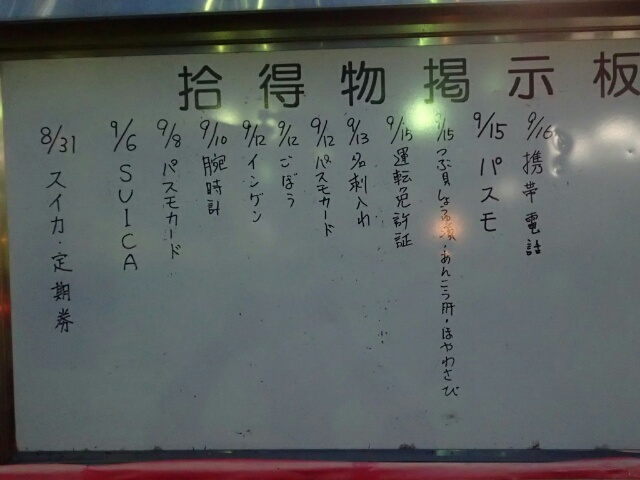 拾得物掲示板
9/16 携帯電話
9/15 パスモ
9/15 つぶ貝しょう油漬・あんこう肝・ほやわさび
9/15 運転免許証
9/13 名刺入れ
9/12 パスモカード
9/12 ごぼう
9/12 インゲン
9/10 腕時計
9/8 パスモカード
9/6 SUICA
8/31 スイカ・定期券